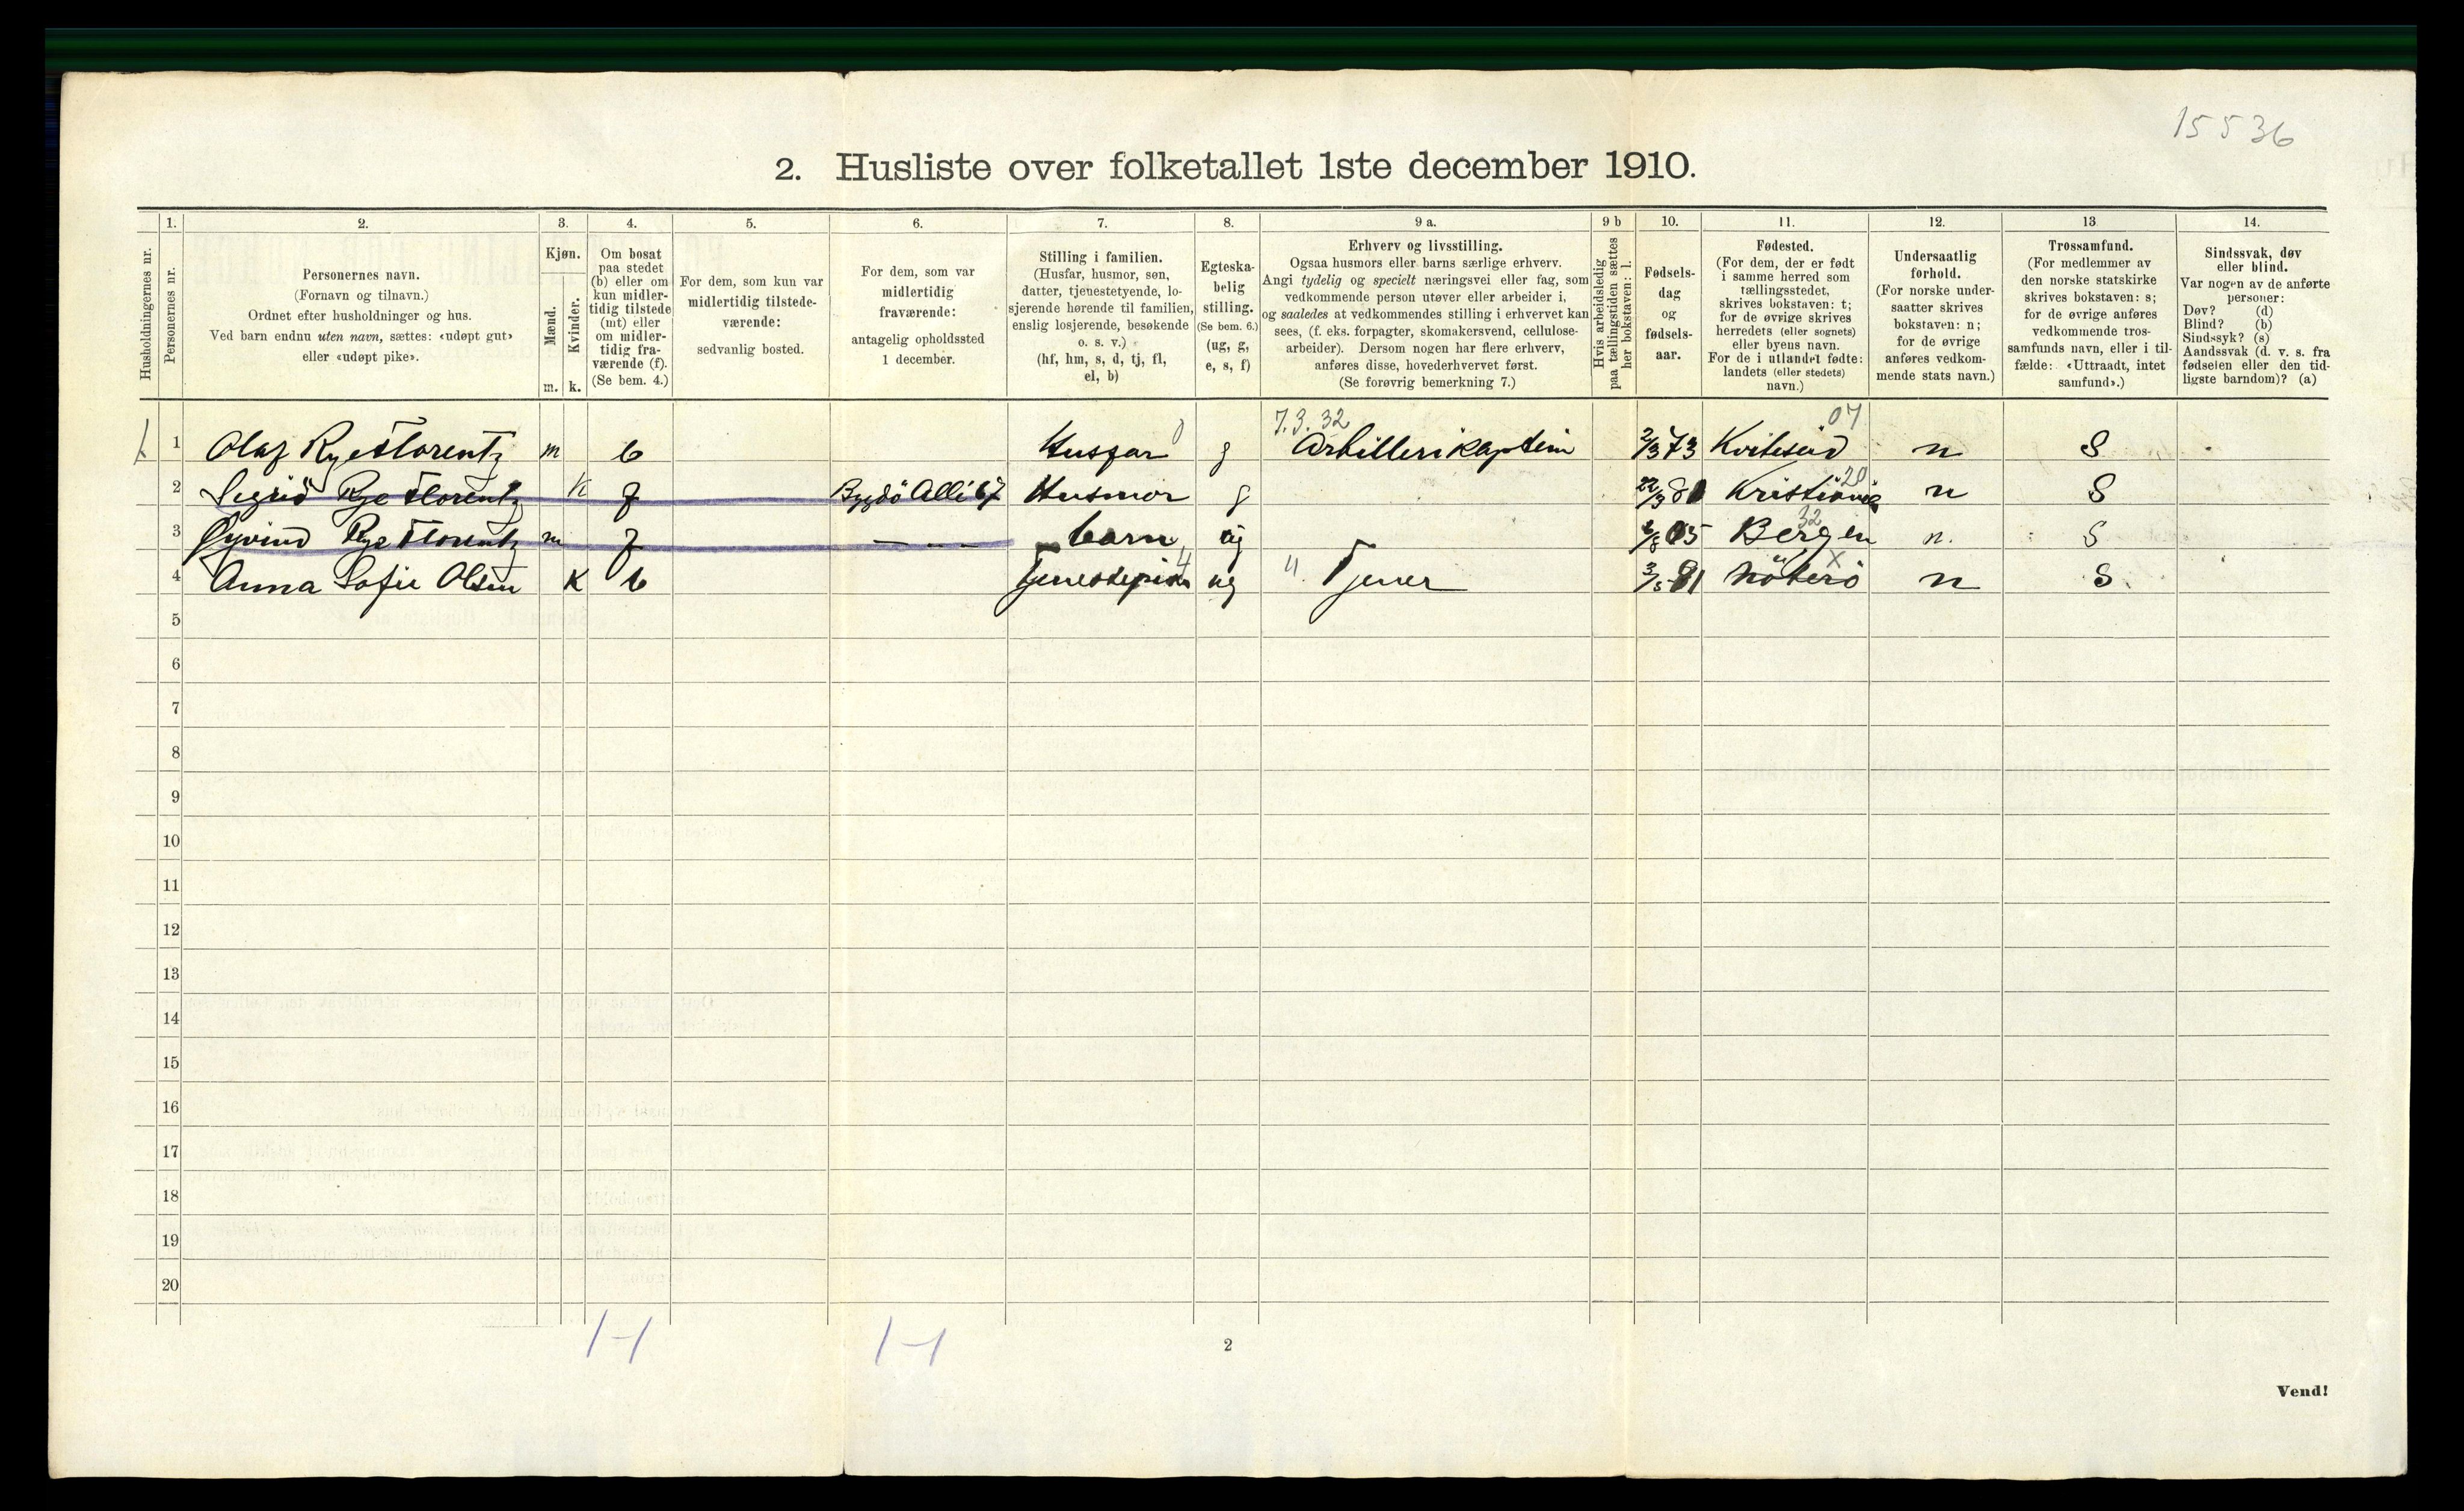 15536
2. Husliste over folketallet 1ste december 1910.
Husholdningernes nr.
1.
Personernes nr.
2.
Personernes navn.
(Fornavn og tilnavn.)
Ordnet efter husholdninger og hus.
Ved barn endnu uten navn, sættes: «udøpt gut»
eller «udøpt pike».
3.
Kjøn.
Mænd.
Kvinder.
m. k.
4.
Om bosat
paa stedet
(b) eller om
kun midler-
tidig tilstede
(mt) eller
om midler-
tidig fra-
værende (f).
(Se bem. 4.)
5.
For dem, som kun var
midlertidig tilstede-
værende:
sedvanlig bosted.
6.
For dem, som var
midlertidig
fraværende:
antagelig opholdssted
1 december.
7.
Stilling i familien.
(Husfar, husmor, søn,
datter, tjenestetyende, lo-
sjerende hørende til familien,
enslig losjerende, besøkende
o. s. v.)
(hf, hm, s, d, tj, fl,
el, b)
8.
Egteska-
belig
stilling.
(Se bem. 6.)
(ug, g,
e, s, f)
9 a.
Erhverv og livsstilling.
Ogsaa husmors eller barns særlige erhverv.
Angi tydelig og specielt næringsvei eller fag, som
vedkommende person utøver eller arbeider i,
og saaledes at vedkommendes stilling i erhvervet kan
sees, (f. eks. forpagter, skomakersvend, cellulose-
arbeider). Dersom nogen har flere erhverv,
anføres disse, hovederhvervet først.
(Se forøvrig bemerkning 7.)
9 b
Hvis arbeidsledig
paa tællingstiden sættes
her bokstaven: l.
10.
Fødsels-
dag
og
fødsels-
aar.
11.
Fødested.
(For dem, der er født
i samme herred som
tællingsstedet,
skrives bokstaven: t;
for de øvrige skrives
herredets (eller sognets)
eller byens navn.
For de i utlandet fødte:
landets (eller stedets)
navn.)
12.
Undersaatlig
forhold.
(For norske under-
saatter skrives
bokstaven: n;
for de øvrige
anføres vedkom-
mende stats navn.)
13
Trossamfund.
(For medlemmer av
den norske statskirke
skrives bokstaven: s;
for de øvrige anføres
vedkommende tros-
samfunds navn, eller i til-
fælde: «Uttraadt, intet
samfund».)
14.
Sindssvak, døv
eller blind.
Var nogen av de anførte
personer:
Døv? (d)
Blind? (b)
Sindssyk? (s)
Aandssvak (d. v. s. fra
fødselen eller den tid-
ligste barndom)? (a)
7.3.32 07
1 Olaf Rye Florentz m b Husfar g Artillerikaptein 2/3 73 Kviteseid n S
20
2 Sigrid Rye Florentz K f Bygdö Allé 67 Husmor g 22/3 81 Kristiania n S
32
3 Øyvind Rye Florentz m f — - — barn ug 2/8 05 Bergen n. S
4 x
4 Anna Sofie Olsen K b Tjenestepike ug " Tjener 3/5 81 Nöterö n S.
5
6
7
8
9
10
11
12
13
14
15
16
17
18
19
20
1-1 1-1
2
Vend!